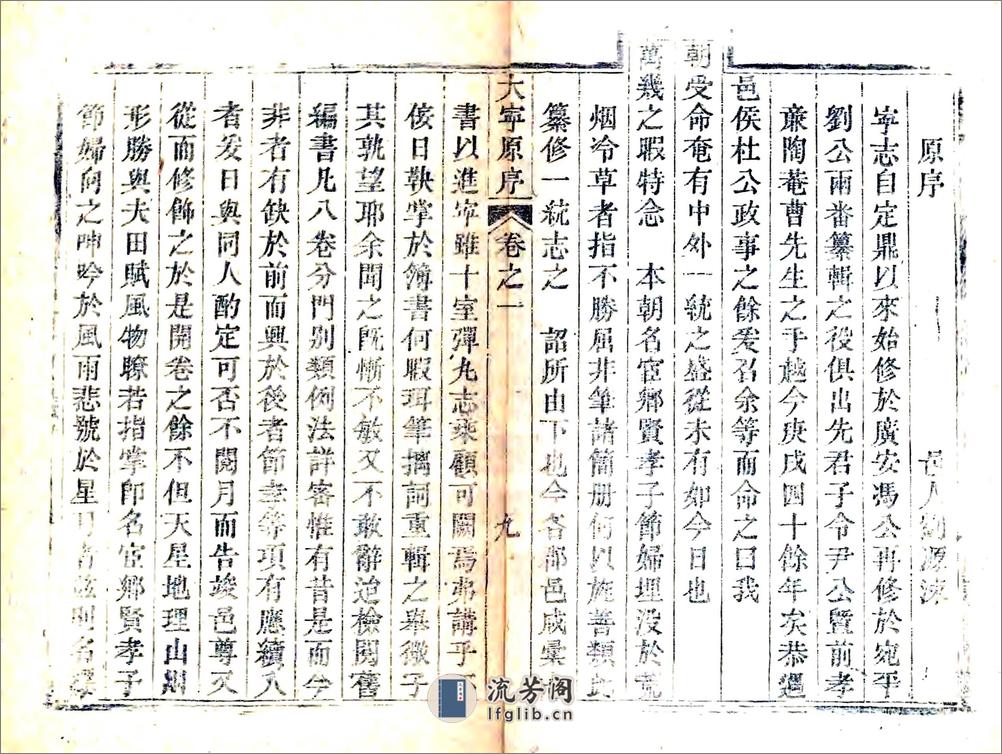 原序
邑人劉源涑
寧志自定鼎以來始修於廣安馮公再修於宛平
劉公兩番纂輯之役俱出先君子令尹公暨前孝
亷陶菴曹先生之手越今庚戌四十餘年矣恭遇
邑侯杜公政事之餘爰召余等而命之曰我
朝受命奄有中外一統之盛從未有如今日也
萬幾之暇特念 本朝名宦鄉賢孝子節婦埋没於荒
烟冷草者指不勝屈非筆諸簡册何以旌善類此
纂修一統志之 詔所由下也今各郡邑咸彙
大寧原序 卷之一 九
書以進寧雖十室彈丸志乘顧可闕焉弗講乎丁
侫日鞅掌於簿書何暇珥筆摛詞重輯之舉微子
其孰望耶余聞之既慚不敏又不敢辭迨檢閱舊
編書凡八卷分門别類例法詳審惟有昔是而今
非者有缺於前而興於後者節孝等項有應續入
者爰日與同人酌定可否不閱月而告竣邑尊又
從而修飾之於是開卷之餘不但天星地理山川
形勝與夫田賦風物瞭若指掌即名宦鄉賢孝子
節婦向之呻吟於風雨悲號於星月者兹則名
流芳阁
lfglib.cn